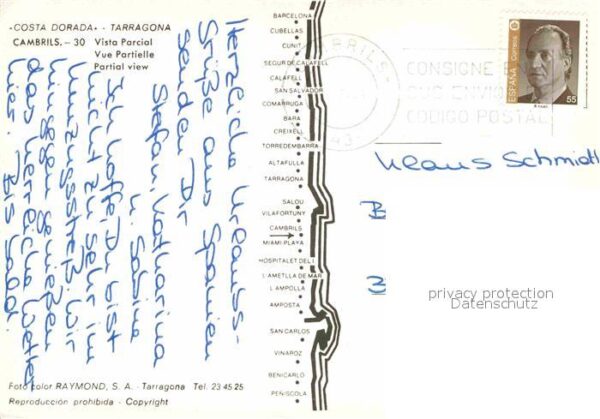 «COSTA DORADA» - TARRAGONA
CAMBRILS. - 30 Vista Parcial
Vue Partielle
Partial view
Herzliche Urlaubs-
Grüße aus Spanien
senden Dir
Stefan, Katharina
u. Sabina
Ich hoffe, Du bist
nicht zu sehr im
Umzugsstreß. Wir
hingegen genießen
das herrliche Wetter
hier.
Bis bald.
Foto color RAYMOND, S. A. - Tarragona Tel. 23 45 25
Reproducción prohibida - Copyright
BARCELONA
CUBELLAS
CUNIT
SEGUR DE CALAFELL
CALAFELL
SAN SALVADOR
COMARRUGA
BARA
CREIXELL
TORREDEMBARRA
ALTAFULLA
TARRAGONA
SALOU
VILAFORTUNY
CAMBRILS
MIAMI-PLAYA
HOSPITALET DEL I.
L'AMETLLA DE MAR
L'AMPOLLA
AMPOSTA
SAN CARLOS
VINAROZ
BENICARLO
PEÑISCOLA
CONSIGNE
SUS ENVIO
CODIGO POSTAL
ESPAÑA Correos
55
Klaus Schmidt
privacy protection
Datenschutz